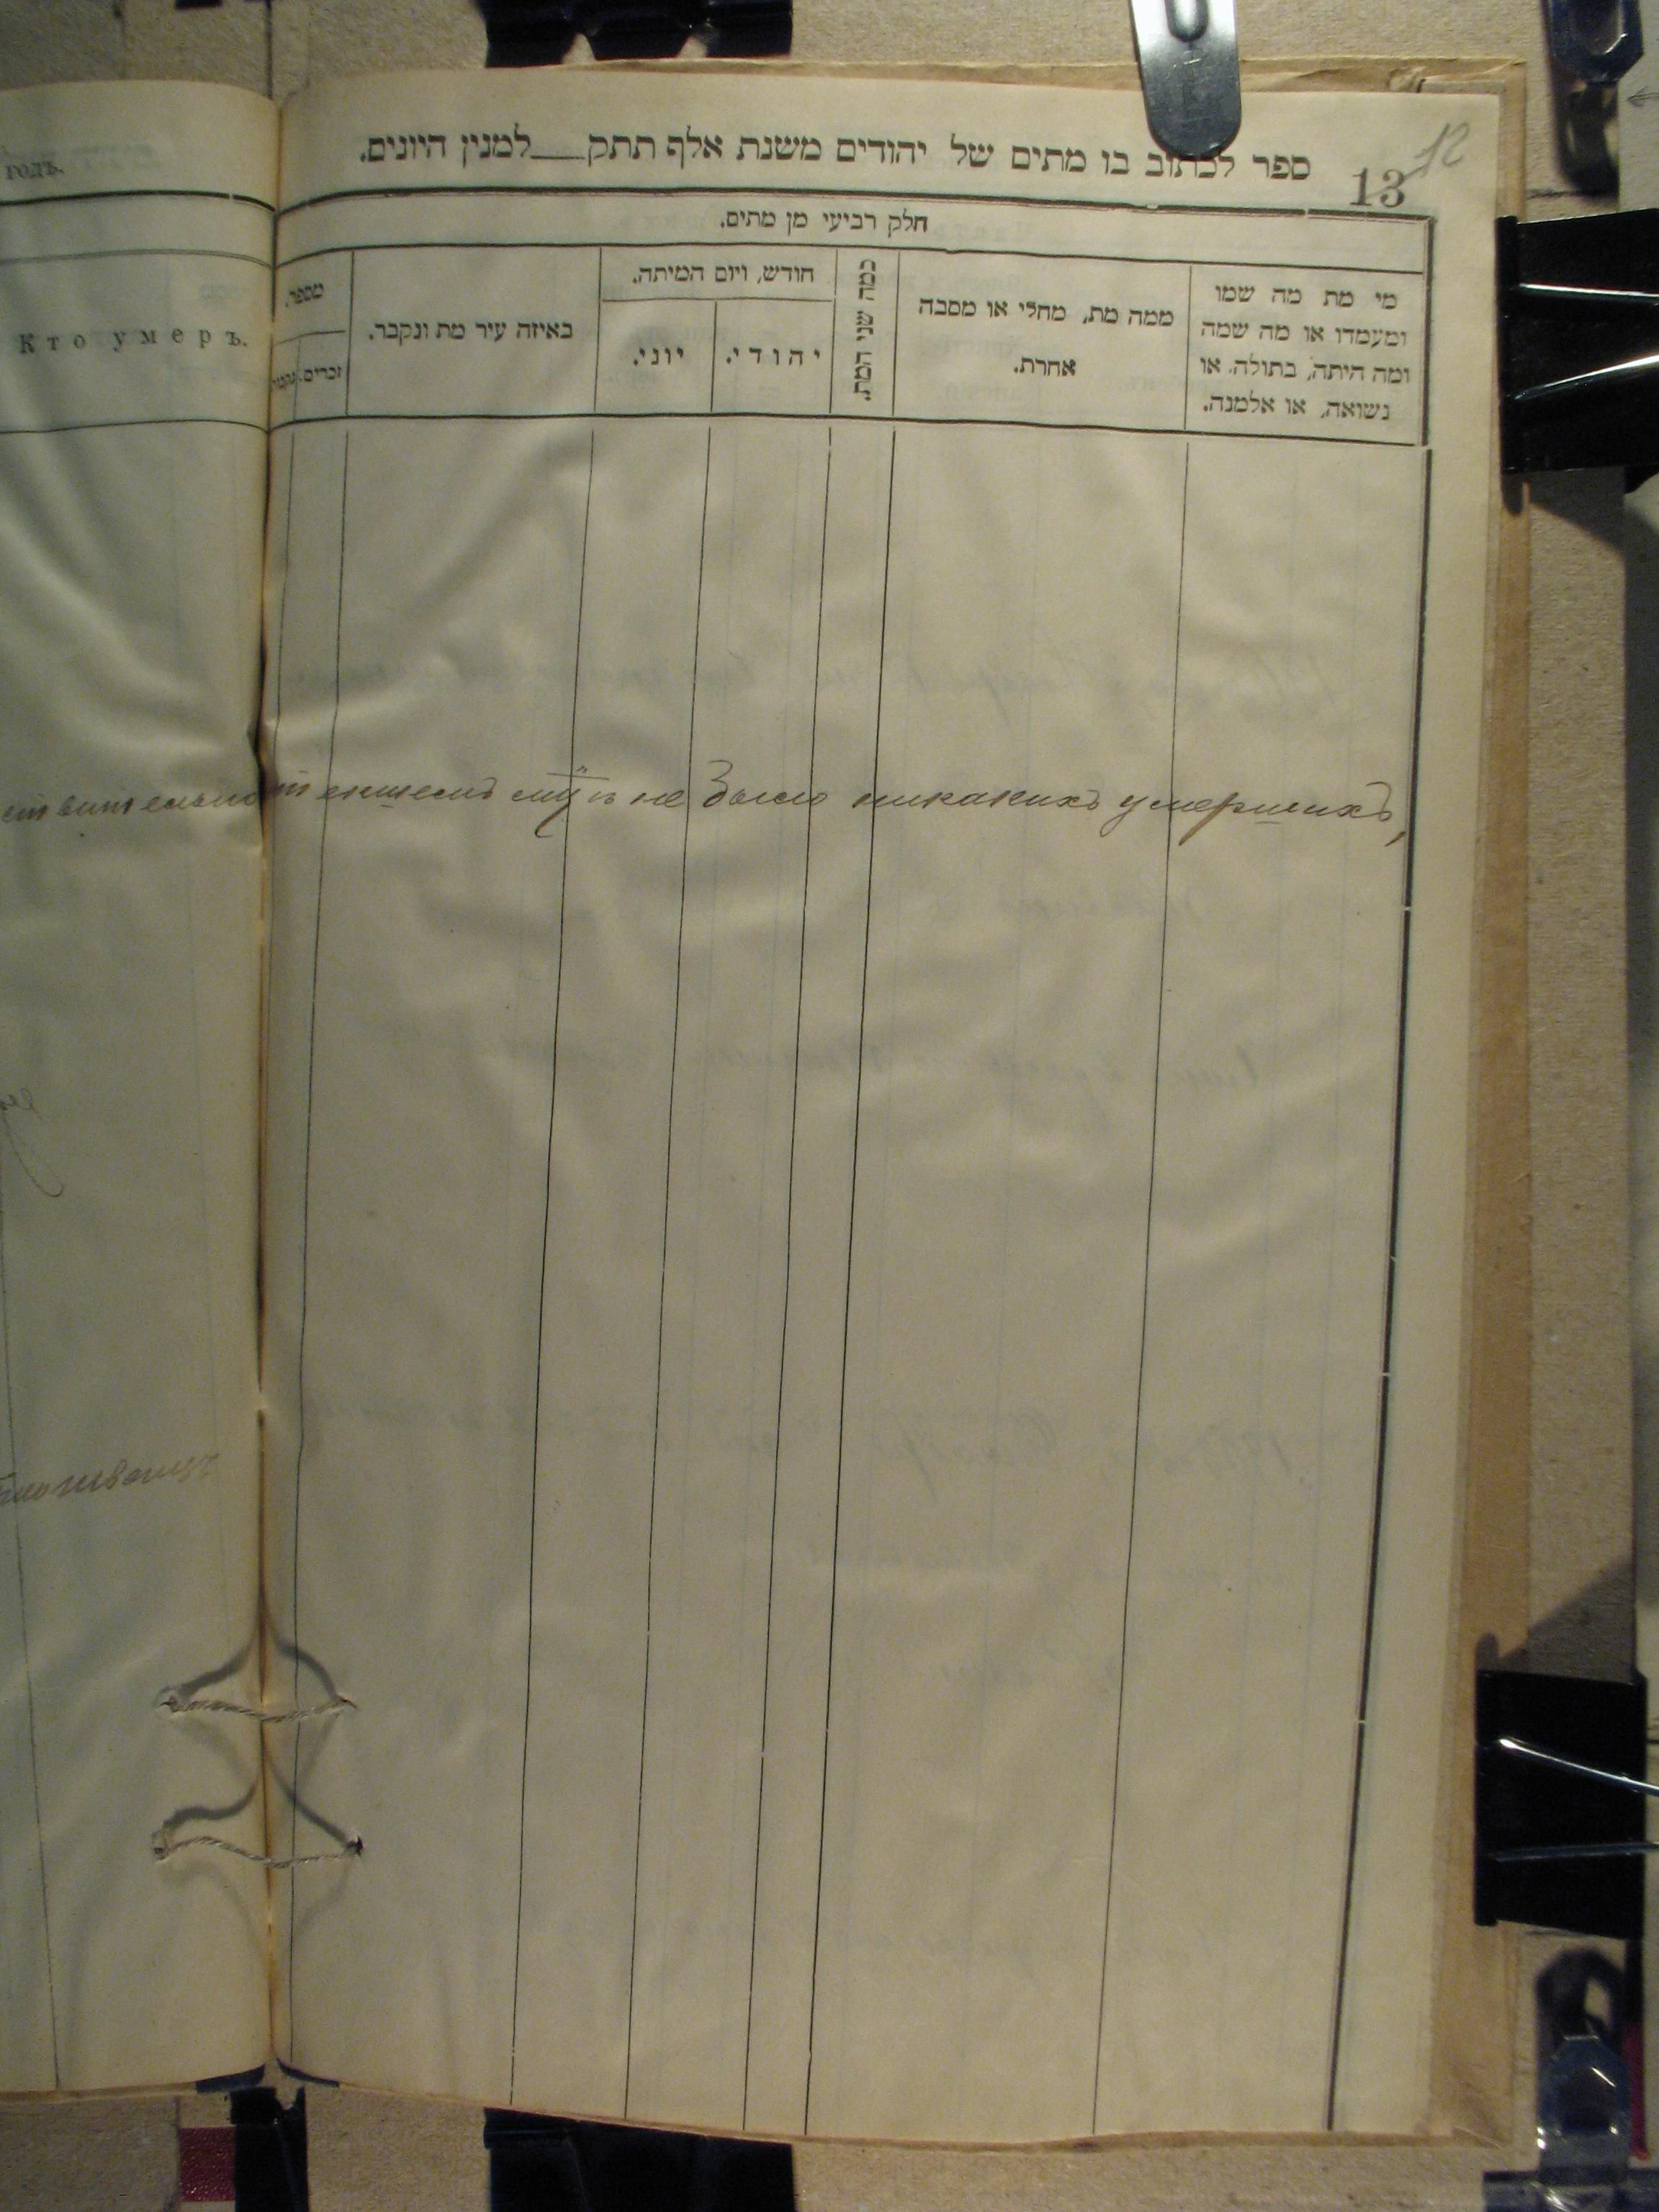 годъ.
Кто умеръ.
12
13
ספר לכתוב בו מתים של יהודים משנת אלף תתק___למנין היונים.
חלק רביעי מן מתים.
מי מת מה שמו
ומעמדו או מה שמה
ומה היתה, בתולה, או
נשואה, או אלמנה.
ממה מת, מחלי או מסבה
אחרת.
כמה שני המת.
חודש, ויום המיתה.
יהודי.
יוני.
באיזה עיר מת ונקבר.
מספר.
זכרים.
не было никакихъ умершихъ,